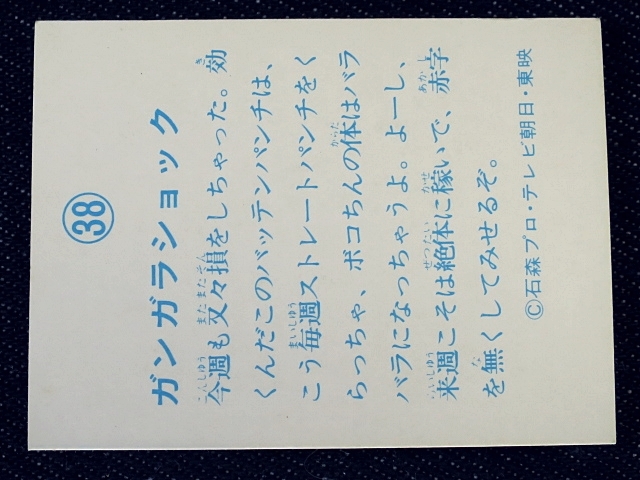 38
ガンガラショック
今週も又々損をしちゃった。効
くんだこのバッテンパンチは、
こう毎週ストレートパンチをく
らっちゃ、ボコちんの体はバラ
バラになっちゃうよ。よーし、
来週こそは絶体に稼いで、赤字
を無くしてみせるぞ。
©石森プロ・テレビ朝日・東映